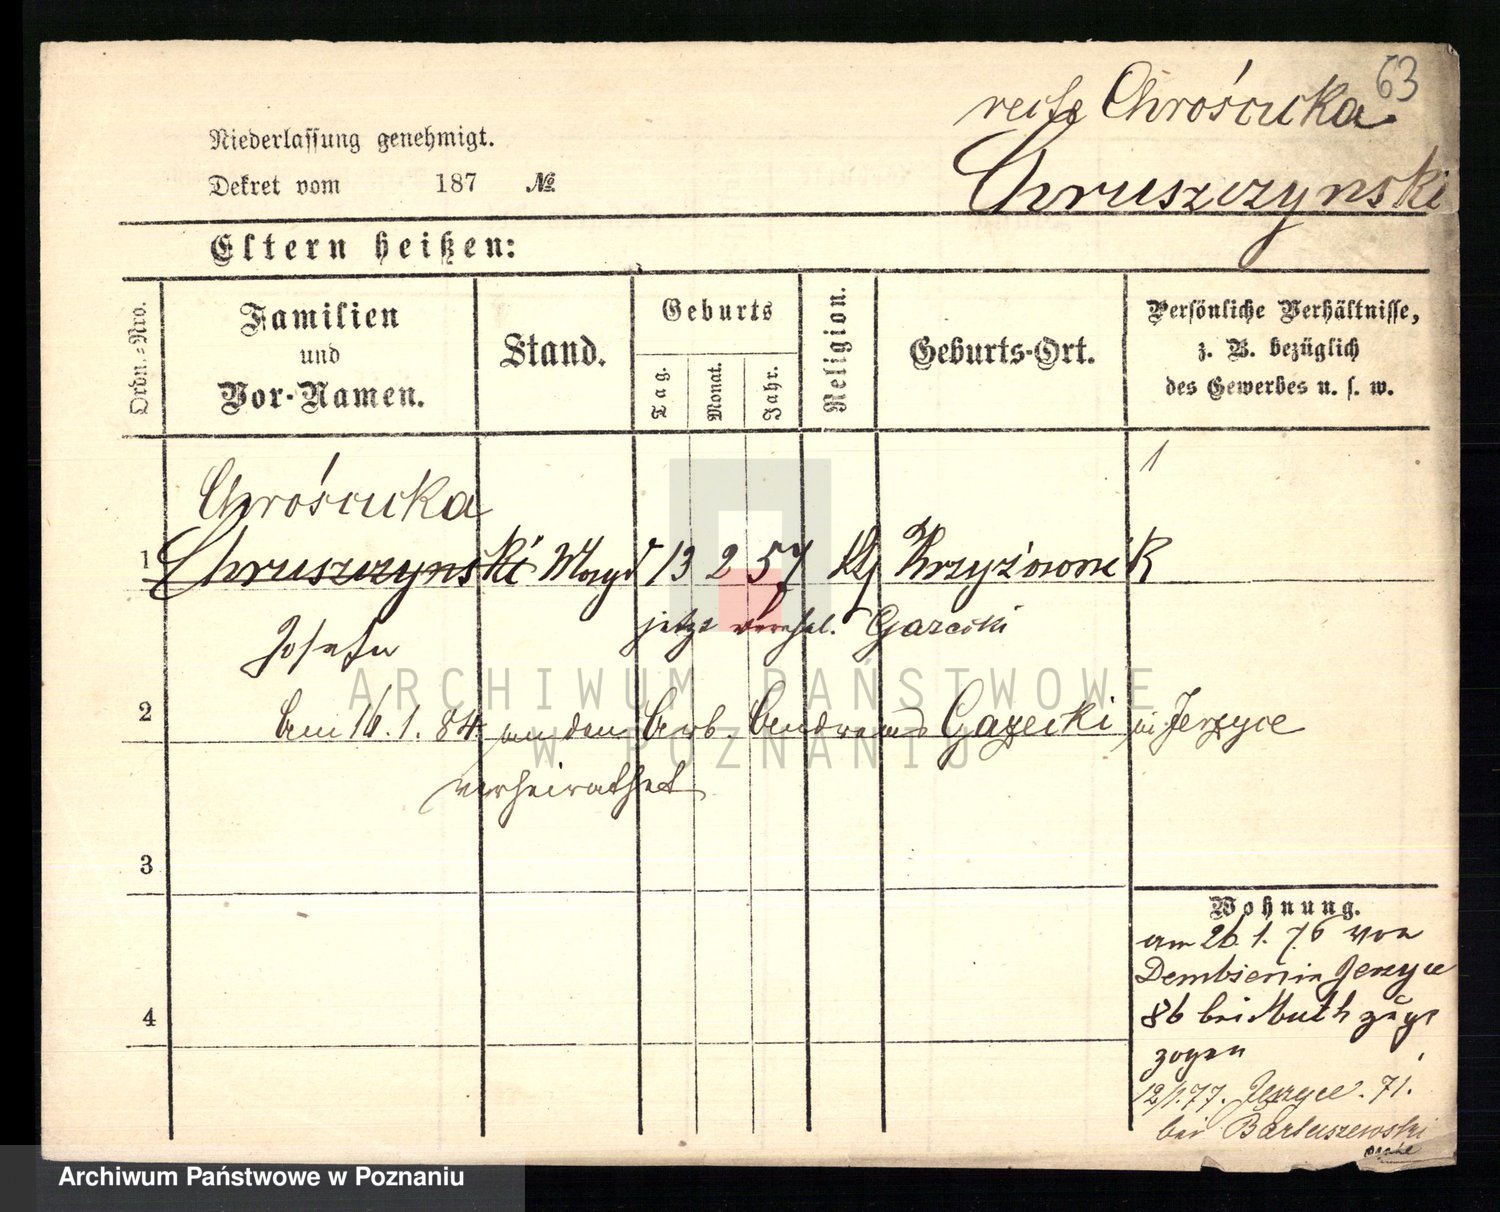 63
recte Chrościcka
Niederlassung genehmigt.
Dekret vom 187 №
Chruszczynski
Eltern heißen:
Ordn.=Nro.
Familien
und
Vor-Namen.
Stand.
Geburts
Tag.
Monat.
Jahr.
Religion.
Geburts-Ort.
Persönliche Verhältnisse,
z. B. bezüglich
des Gewerbes u. s. w.
Chrościcka
1 Chruszczynski Magd 13 2 57 Ktg Krzyżownik
jetzt verehel. Gazecki
Josefa
ARCHIWUM PAŃSTWOWE
W POZNANIU
2 am 16.1.84 an den Arb. Andreas Gazecki in Jerzyce
verheirathet
3
Wohnung.
am 26.1.76 von
Dembsen in Jerzyce
86 bei Muth zuge
zogen
4
12/1.77. Jerzyce. 71.
bei Bartuszewski
Archiwum Państwowe w Poznaniu